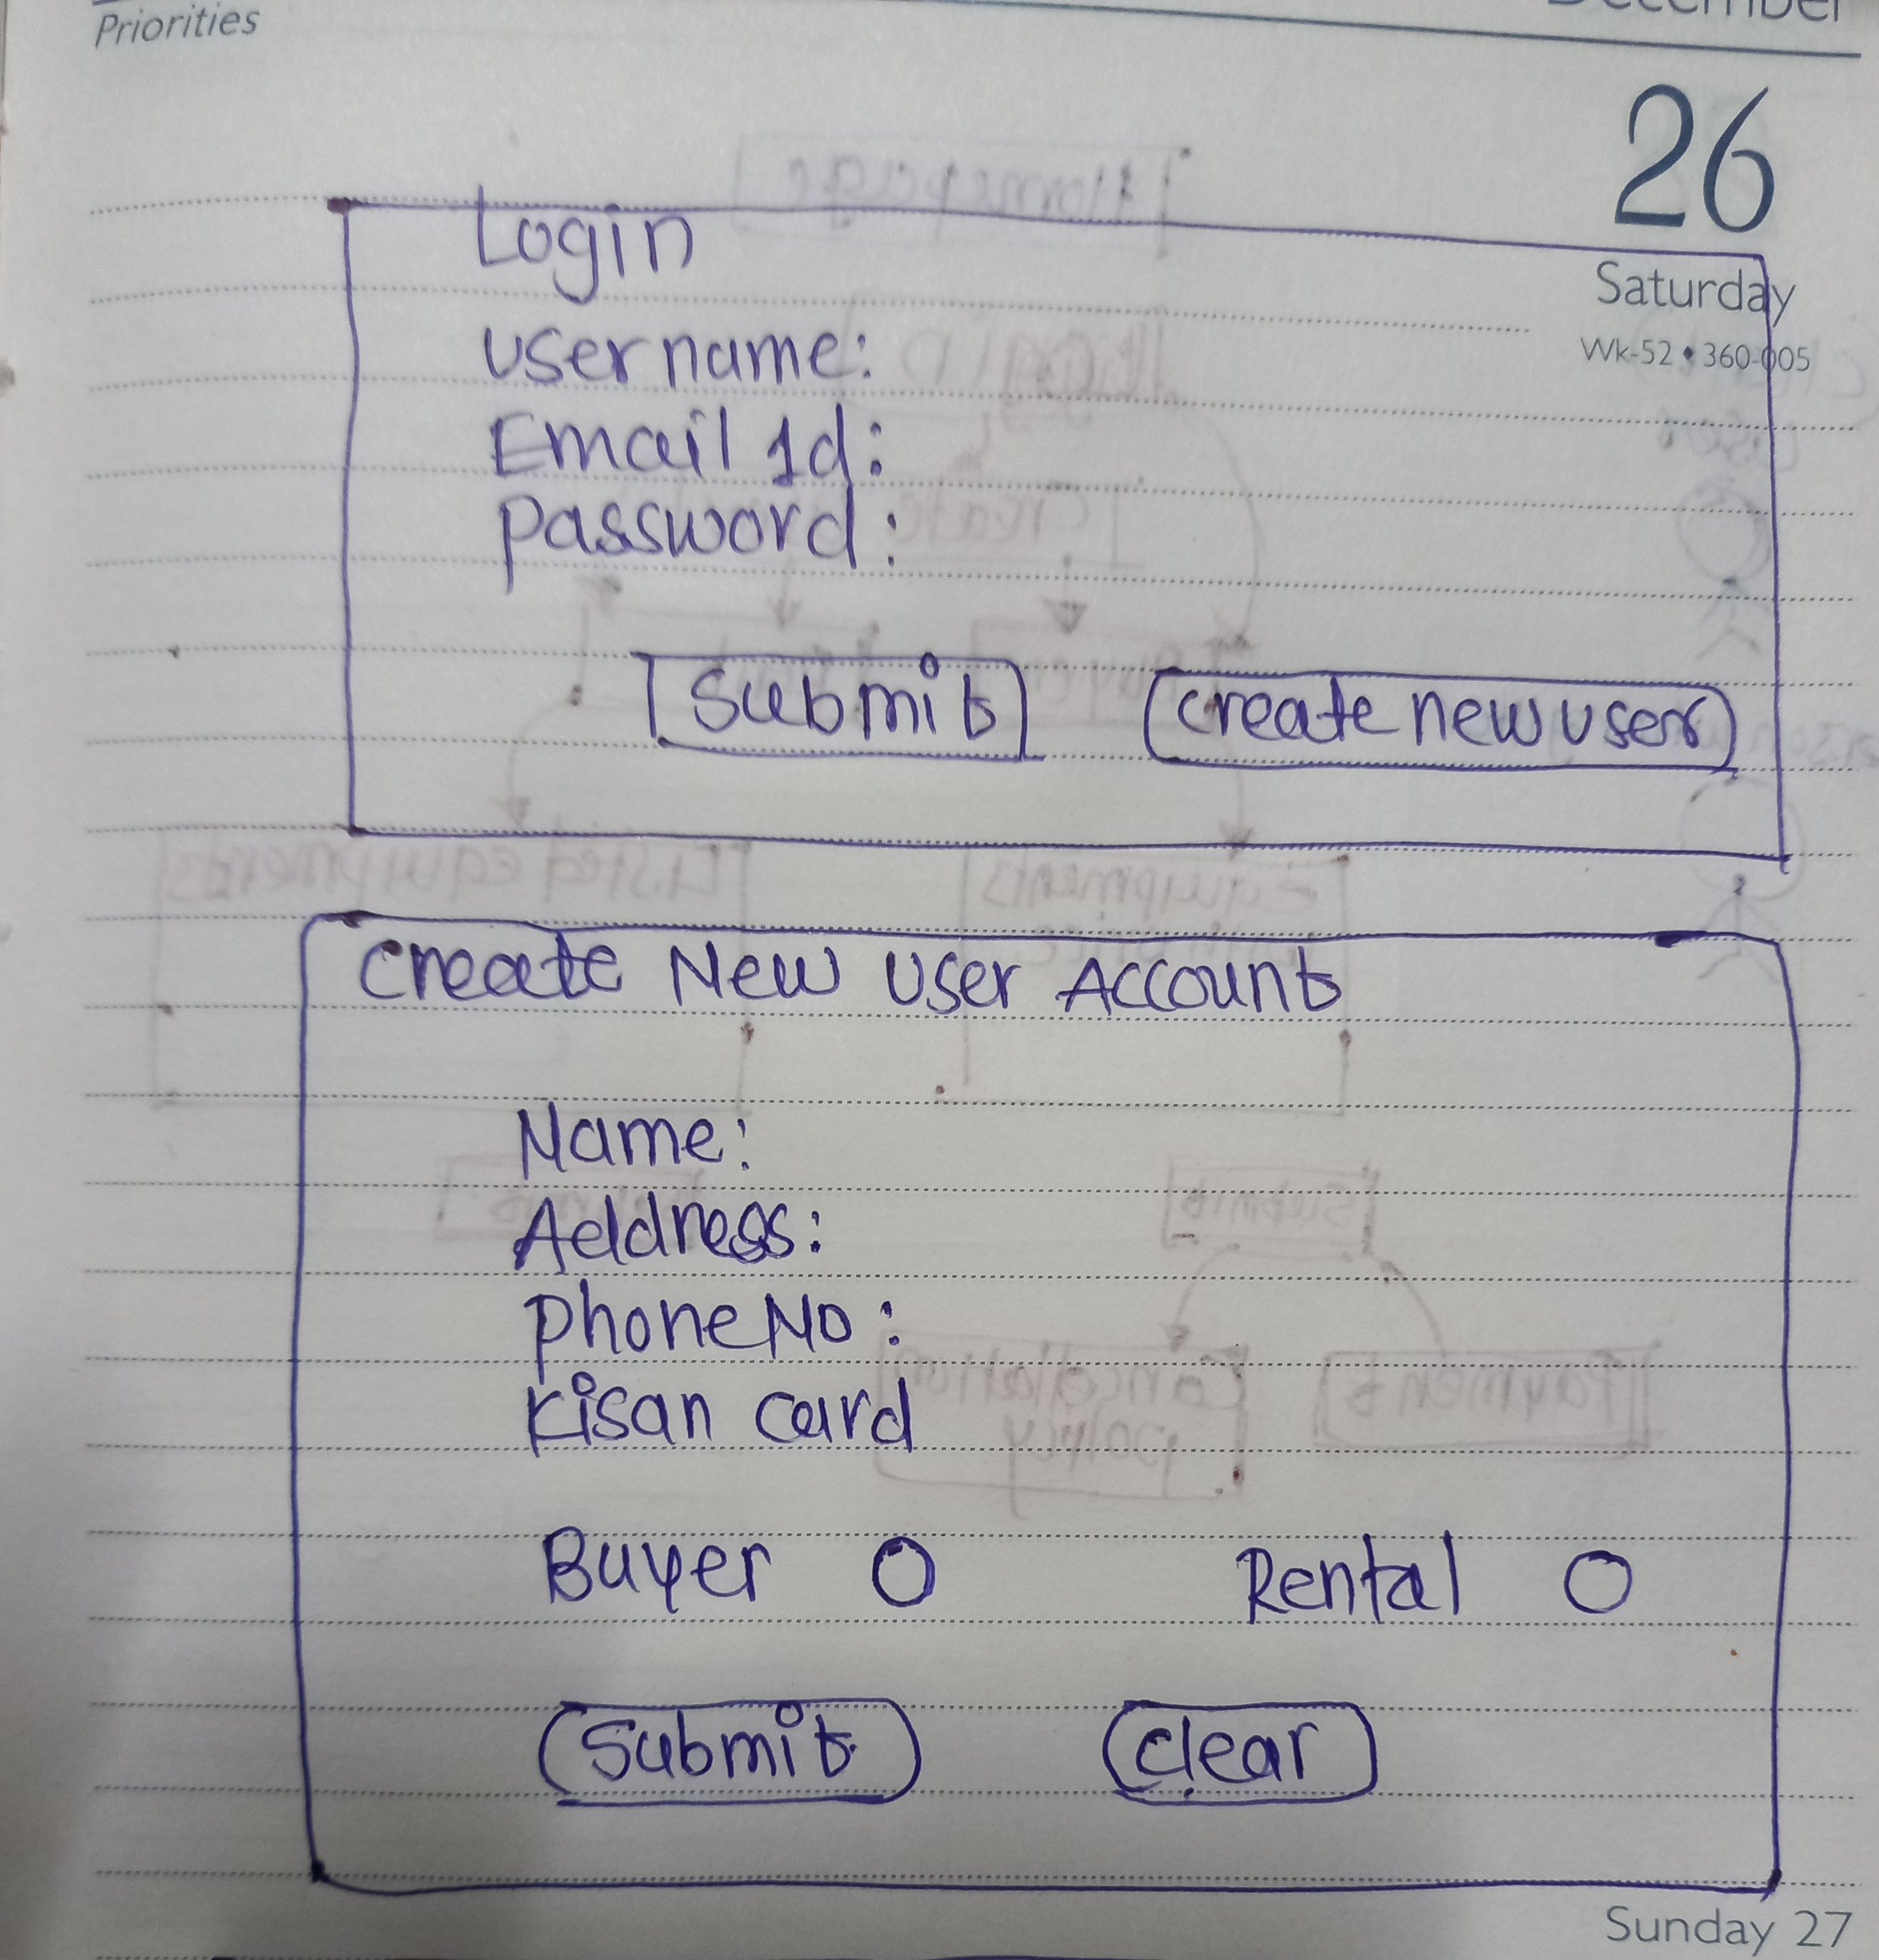 Priorities
December
26
Saturday
Wk-52 • 360-005
Login
username:
Email Id:
password:
Submit
create new user
Create New User Account
Name:
Address:
phone No:
Kisan card
Buyer
Rental
Submit
clear
Sunday 27